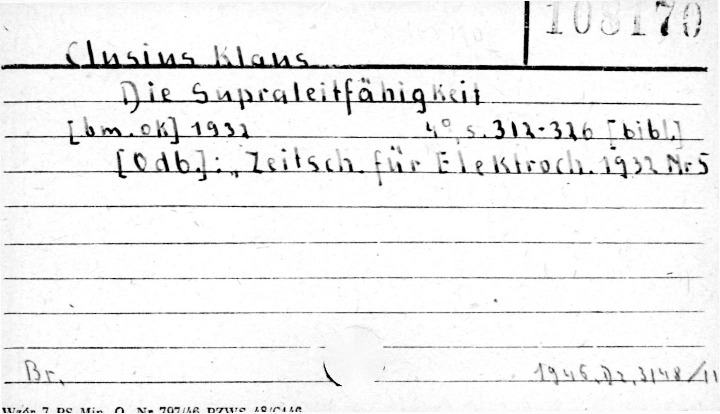 108170
Clusius Klaus
Die Supraleitfähigkeit
[bm. ok] 1932 4°, s. 312-326 [bibl.]
[Odb.]: „Zeitsch. für Elektroch. 1932 Nr 5
Br. 1946. Dz. 3148/11
Wzór 7 PS Min. O. Nr 797/46 PZWS